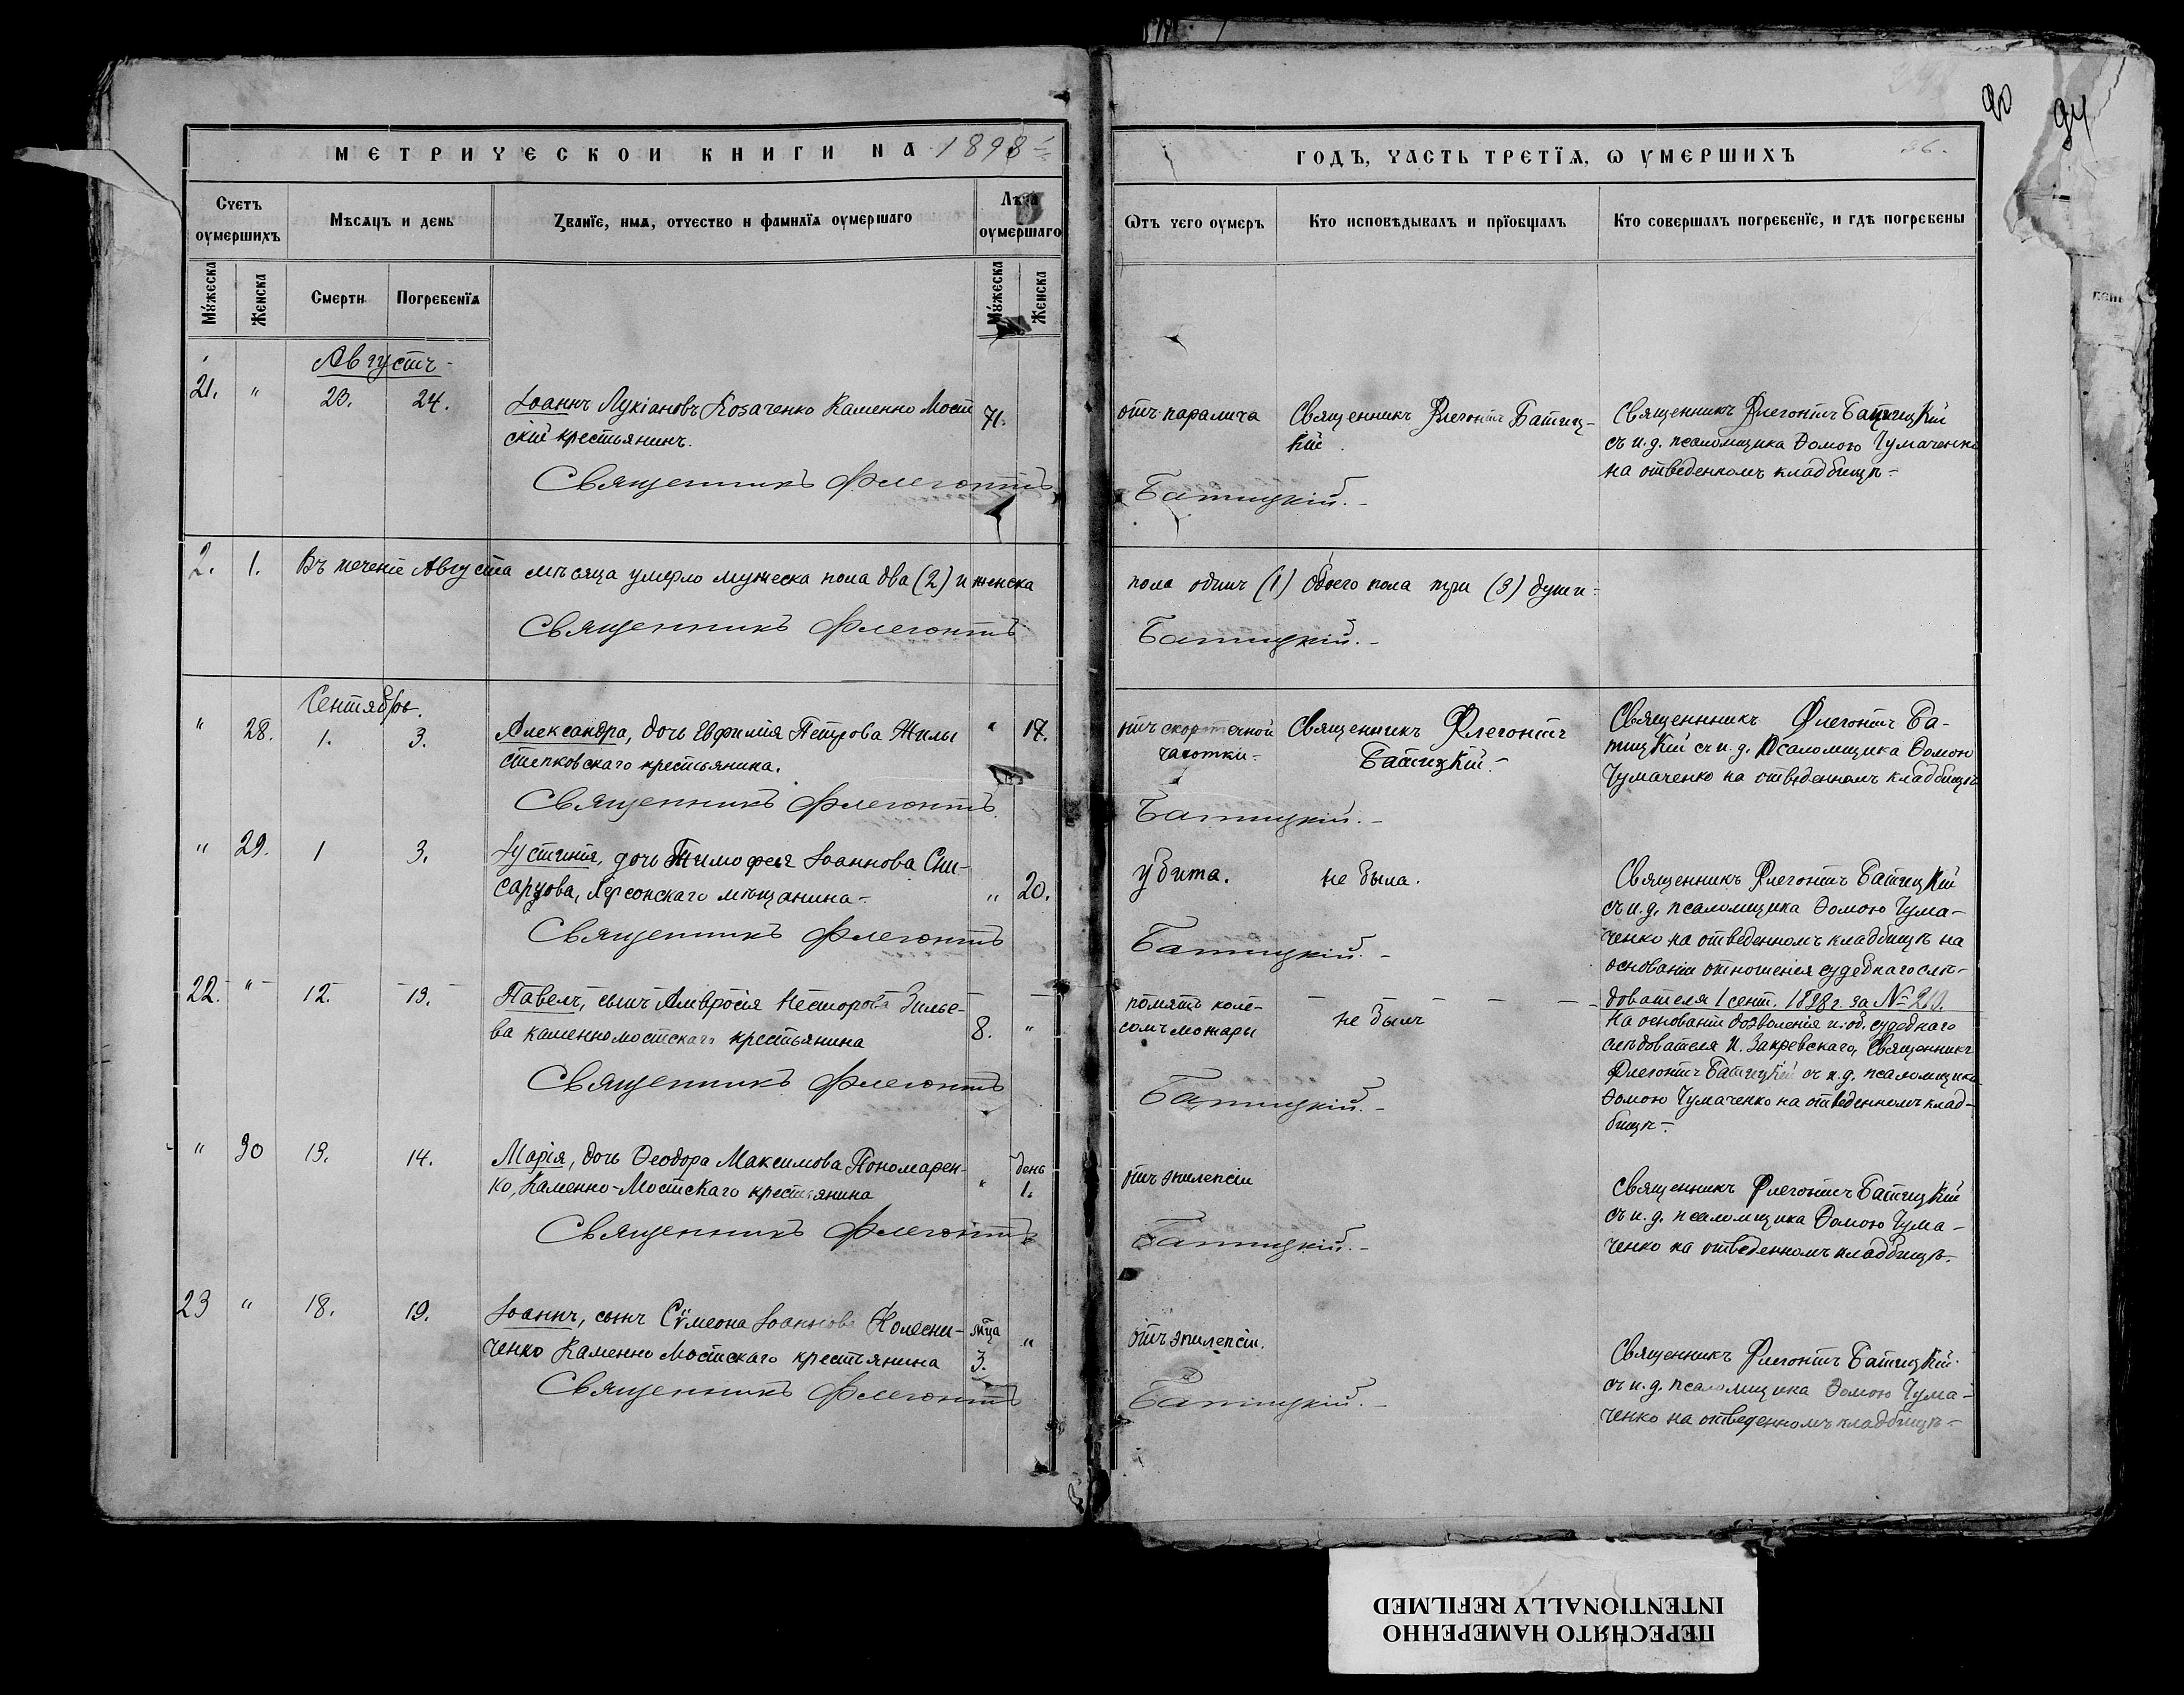 90
94
МЕТРИЧЕСКОЙ КНИГИ НА 1898 й
ГОДЪ, ЧАСТЬ ТРЕТІЯ, Ѡ ОУМЕРШИХЪ
Счетъ оумершихъ
Мѣсяцъ и день
Званїе, имя, отчество и фамилїя оумершаго
Лѣта оумершаго
Ѿтъ чего оумеръ
Кто исповѣдывалъ и прїобщалъ
Кто совершалъ погребенїе, и гдѣ погребены
Мꙋжеска
Женска
Смерти
Погребенїя
Мꙋжеска
Женска
Августъ
21. " 23. 24.
Іоаннъ Лукіановъ Козаченко Каменно Мост
скій крестьянинъ.
71.
отъ паралича
Священникъ Флегонтъ Батиц-
кій.
Священникъ Флегонтъ Батицкій
съ и. д. псаломщика Ѳомою Чумаченко
на отведенномъ кладбищѣ-
Священникъ Флегонтъ Батицкій.-
2. 1. Въ теченіе Августа мѣсяца умерло мужеска пола два (2) и женска
пола одинъ (1) обоего пола три (3) души-
Священникъ Флегонтъ Батицкій.-
Сентябрь.
" 28. 1. 3.
Александра, дочь Евфимія Петрова Жилы
степковскаго крестьянина.
" 17.
отъ скоротечной
чахотки-
Священникъ Флегонтъ
Батицкій.-
Священникъ Флегонтъ Ба-
тицкій съ и. д. псаломщика Ѳомою
Чумаченко на отведенномъ кладбищѣ
Священникъ Флегонтъ Батицкій.-
" 29. 1 3.
Іустинія, дочь Тимофея Іоаннова Сли-
сарцова, Херсонскаго мѣщанина-
" 20.
убита.
не была.
Священникъ Флегонтъ Батицкій
съ и. д. псаломщика Ѳомою Чума-
ченко на отведенномъ кладбищѣ на
основаніи отношенія судебнаго слѣ-
дователя 1 сент. 1898 г. за №
Священникъ Флегонтъ Батицкій.-
22. " 12. 13.
Павелъ, сынъ Амвросія Несторова Зилье-
ва каменномостскаго крестьянина
8. "
помятъ коле-
сомъ можары
не былъ
На основаніи дозволенія и. об. судебнаго
слѣдователя И. Закревскаго, Священникъ
Флегонтъ Батицкій съ и. д. псаломщика
Ѳомою Чумаченко на отведенномъ клад-
бищѣ-
Священникъ Флегонтъ Батицкій.-
" 30 13. 14.
Марія, дочь Ѳеодора Максимова Пономарен-
ко, Каменно-Мостскаго крестьянина
" день 1.
отъ эпилепсіи
Священникъ Флегонтъ Батицкій
съ и. д. псаломщика Ѳомою Чума-
ченко на отведенномъ кладбищѣ-.
Священникъ Флегонтъ Батицкій.-
23 " 18. 19.
Іоаннъ, сынъ Сѵмеона Іоаннова Колесни-
ченко Каменно Мостскаго крестьянина
м-ца 3. "
отъ эпилепсіи.
Священникъ Флегонтъ Батицкій
съ и. д. псаломщика Ѳомою Чума-
ченко на отведенномъ кладбищѣ-
Священникъ Флегонтъ Батицкій.-
ПЕРЕСНЯТО НАМЕРЕННО
INTENTIONALLY REFILMED